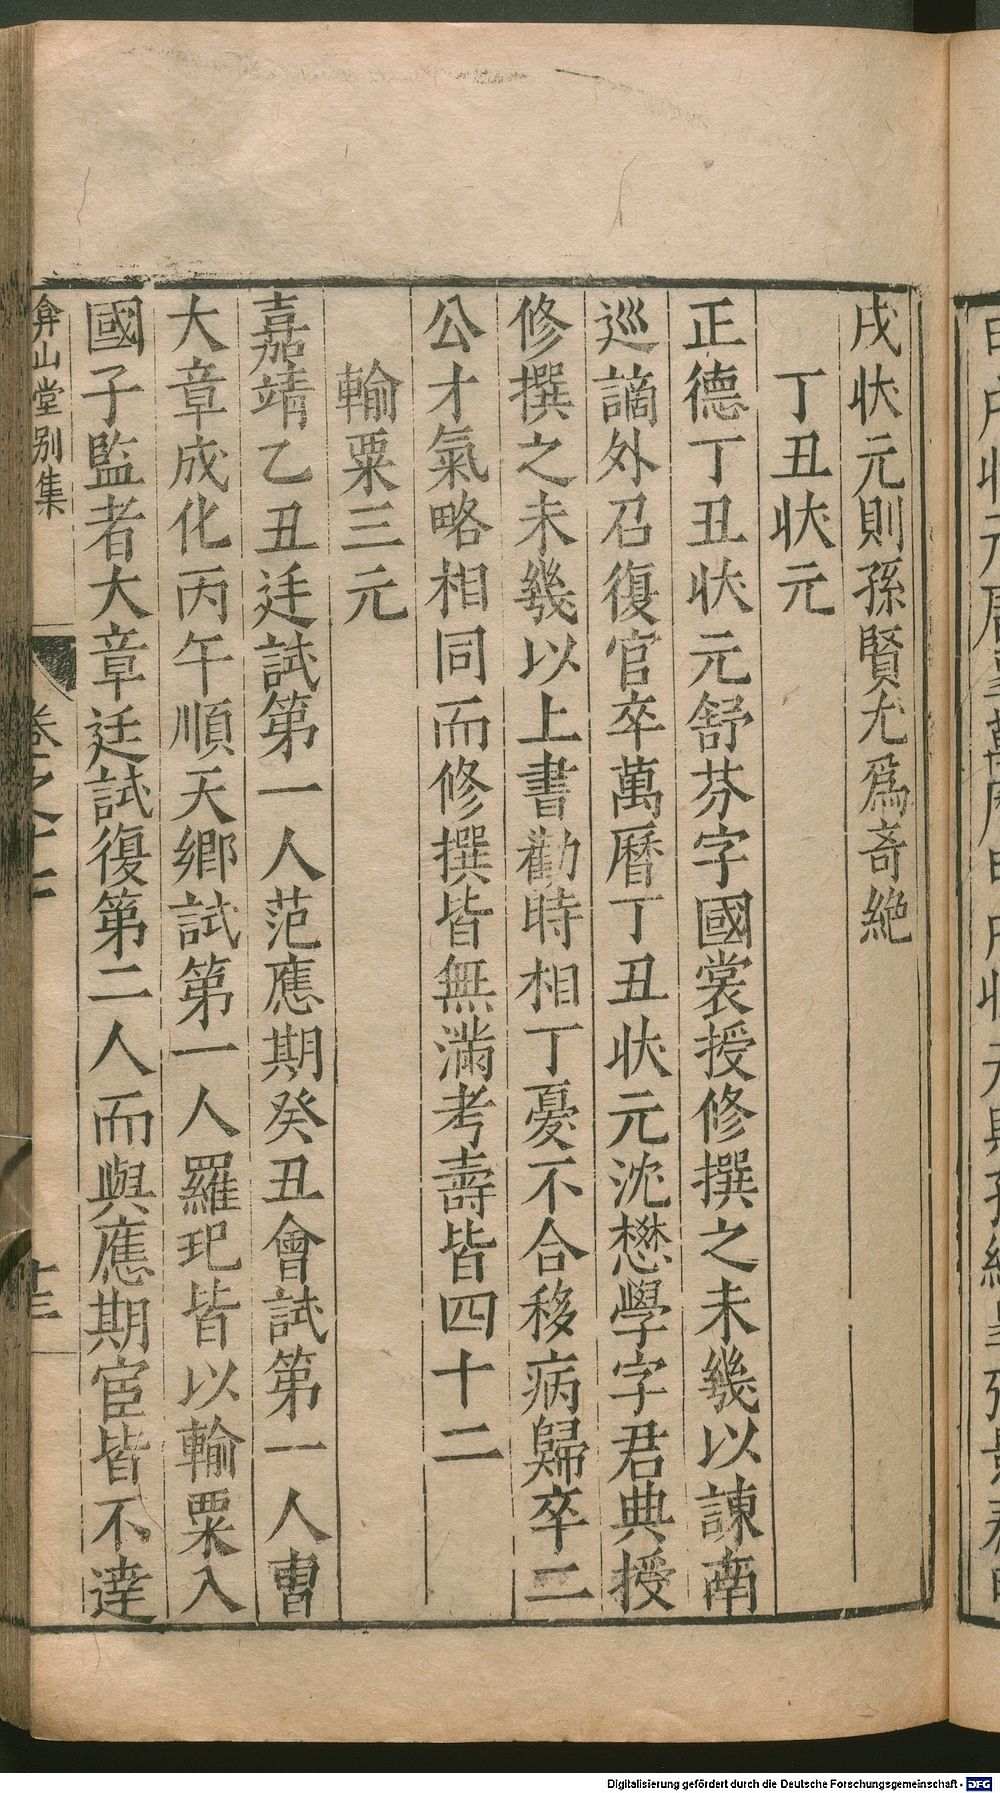 戌狀元則孫賢尤爲奇絶
丁丑狀元
正德丁丑狀元舒芬字國裳授修撰之未幾以諫南
巡謫外召復官卒萬曆丁丑狀元沈懋學字君典授
修撰之未幾以上書勸時相丁憂不合移病歸卒二
公才氣略相同而修撰皆無滿考壽皆四十二
輸粟三元
嘉靖乙丑廷試第一人范應期癸丑會試第一人曹
大章成化丙午順天鄉試第一人羅玘皆以輸粟入
國子監者大章廷試復第二人而與應期宦皆不達
弇山堂别集
卷之十七
十三
Digitalisierung gefördert durch die Deutsche Forschungsgemeinschaft - DFG